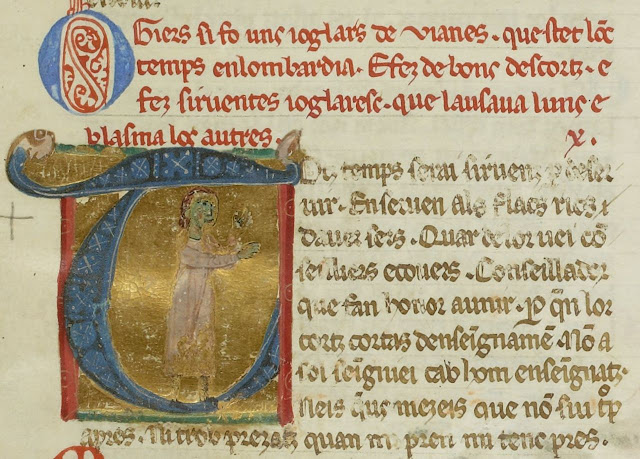 Ogiers si fo unç ioglars de vianes. questet lõc
temps enlombardia. Efez de bonç descortz. e
fez siruentes ioglaresc. que lausaua lunç e
blasma loc autres. x.
Tot temps serai siruenz p deser
uir. Enseruen als flacs rics
dauer sers. Quar de lor uei
diuers ecouers. Conseillador
que fan honor aunir. P qin lor
cortz cortas densegnamẽ. Nõ a
soi seignei cab hom enseignatz.
meteis que nõ sui
apres. Ni trob prezatz quan mi pren ni tenc pres.